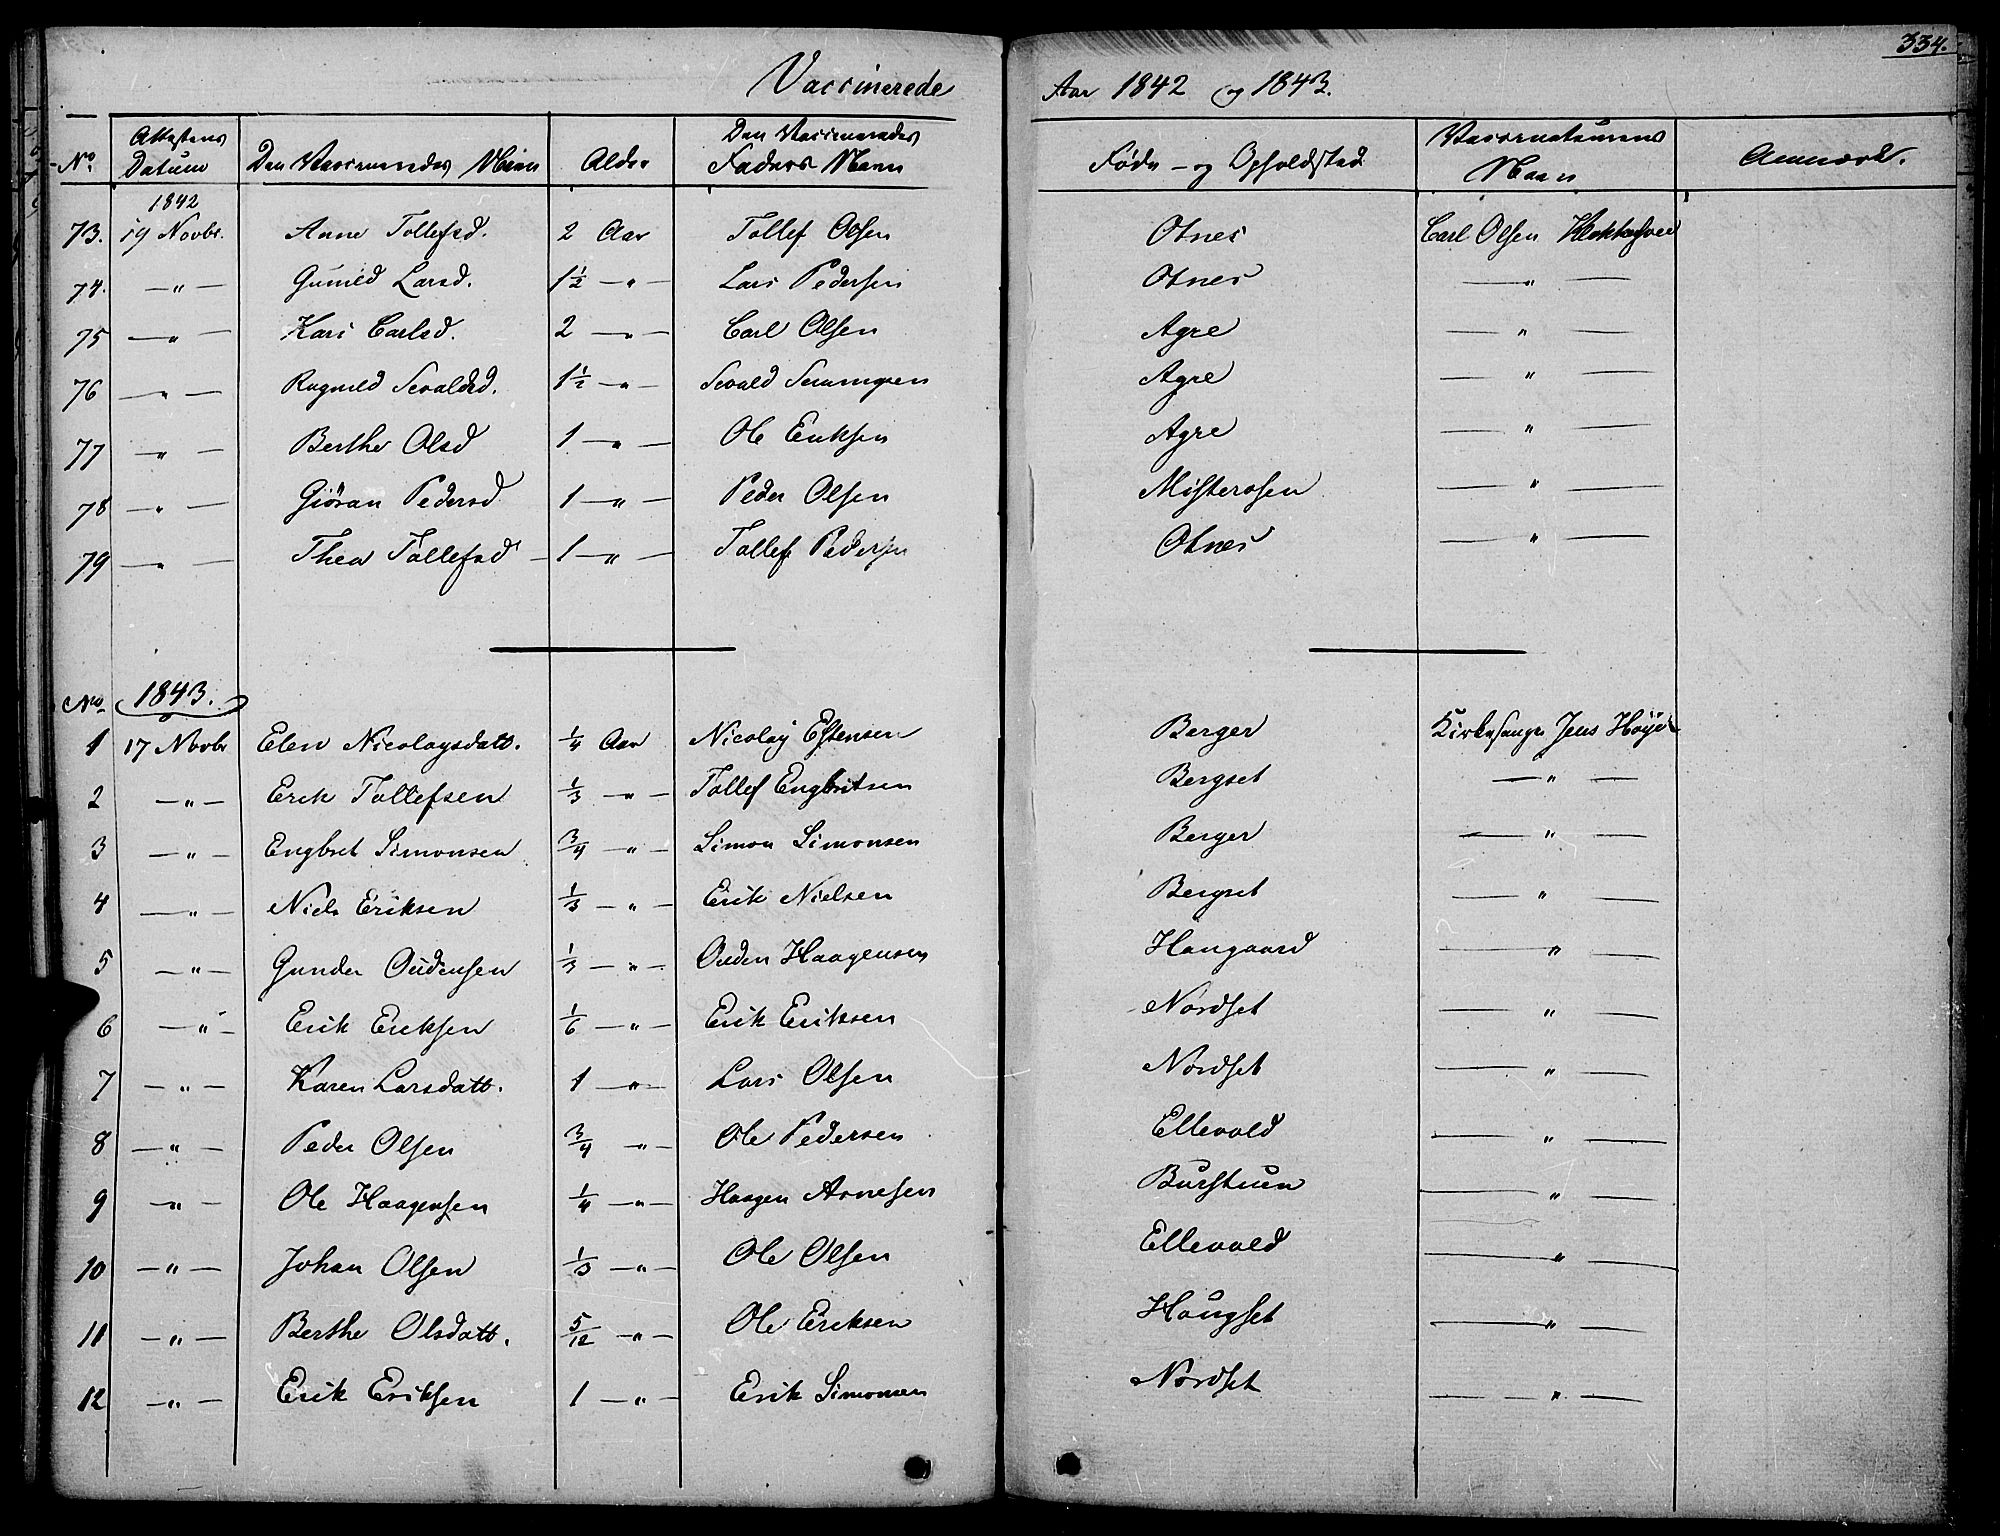 334.
Vaccinerede Aar 1842 og 1843.
No Attestens Datum Den Vaccineredes Navn Alder Den Vaccineredes Faders Navn Føde- og Opholdsted Vaccinateurens Navn Anmærk.
1842
73. 19 Novbr. Anne Tollefsd. 2 Aar Tollef Olsen Otnes Carl Olsen
74. —"— Gunild Larsd. 1½ —"— Lars Pedersen Otnes —"—
75 —"— Kari Carlsd. 2 —"— Carl Olsen Agre —"—
76 —"— Ragnild Sevaldsd. 1½ —"— Sevald Agre —"—
77 —"— Berthe Olsd 1 —"— Ole Eriksen Agre —"—
78 —"— Giöran Pedersd 1 —"— Peder Olsen Misterosen —"—
79 —"— Thea Tollefsd 1 —"— Tollef Pedersen Otnes —"—
No 1843.
1 17 Novbr Elen Nicolaysdatt. ¼ Aar Nicolay Estensen Berger Kirkesanger Jens
2 —"— Erik Tollefsen ⅓ —"— Tollef Engbritsen Bergset —"—
3 —"— Engbret Simonsen ¾ —"— Simon Simonsen Berger —"—
4 —"— Niels Eriksen ⅓ —"— Erik Nielsen Bergset —"—
5 —"— Gunder Oudensen ⅓ —"— Ouden Haagensen Haugaard —"—
6 —"— Erik Eriksen 1/6 —"— Erik Eriksen Nordset —"—
7 —"— Karen Larsdatt. 1 —"— Lars Olsen Nordset —"—
8 —"— Peder Olsen ¾ —"— Ole Pedersen Ellevold —"—
9 —"— Ole Haagensen ¼ —"— Haagen Arnesen Burstuen —"—
10 —"— Johan Olsen ⅓ —"— Ole Olsen Ellevold —"—
11 —"— Berthe Olsdatt. 5/12 —"— Ole Eriksen Haugset —"—
12 —"— Erik Eriksen 1 —"— Erik Simonsen Nordset —"—